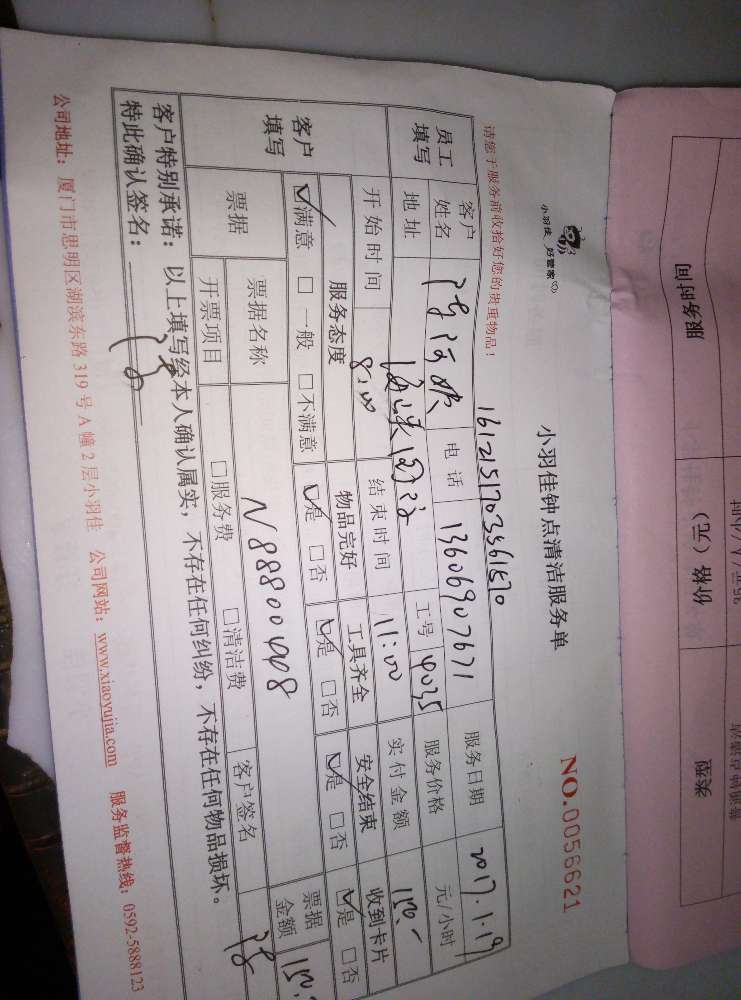 小羽佳_好管家
小羽佳钟点清洁服务单
NO.0056621
请您于服务前收拾好您的贵重物品!
1612151703561570
员工填写
客户姓名
电话 13606907671
服务日期 2017.1.19
地址
工号 4035
服务价格 元/小时
开始时间 8:00
结束时间 11:00
实付金额 150.-
客户填写
服务态度 物品完好 工具齐全 安全结束 收到卡片
☑满意 □一般 □不满意 ☑是 □否 ☑是 □否 ☑是 □否 ☑是 □否
票据
票据名称 N88800448
票据金额 150.-
开票项目 □服务费 □清洁费 客户签名
客户特别承诺:以上填写经本人确认属实,不存在任何纠纷,不存在任何物品损坏。
特此确认签名:
公司地址:厦门市思明区湖滨东路 319 号 A 幢 2 层小羽佳 公司网站:www.xiaoyujia.com 服务监督热线:0592-5888123
服务时间 价格(元) 类型
35元/人/小时